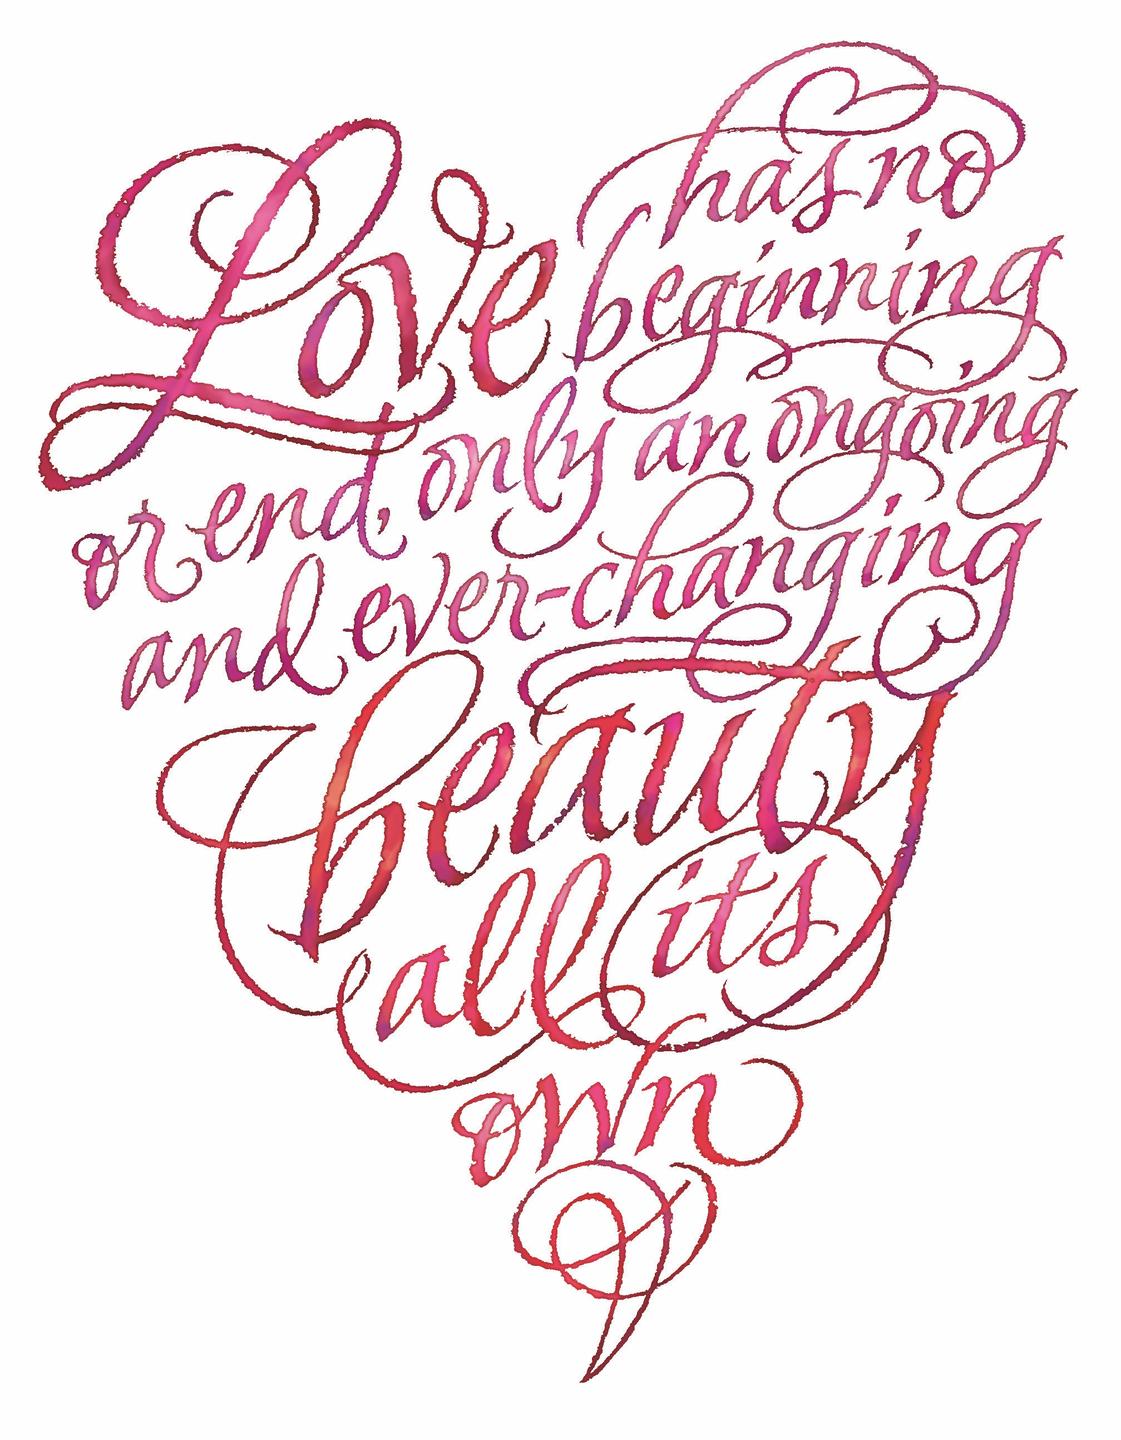 Love has no
beginning
or end, only an ongoing
and ever-changing
beauty
all its
own